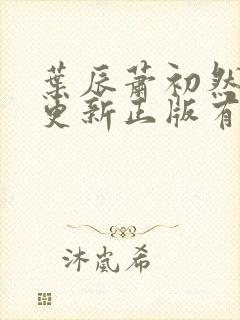 葉辰蕭初然
更新正版有
沐嵐希